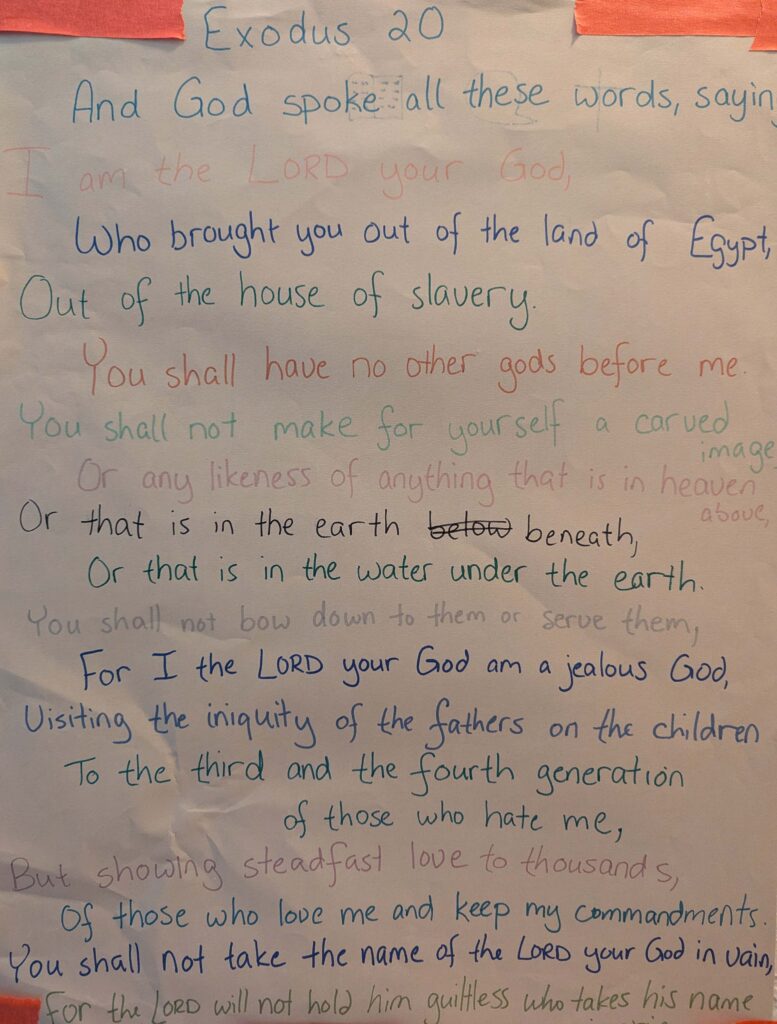 Exodus 20
And God spoke all these words, saying
I am the LORD your God,
Who brought you out of the land of Egypt,
Out of the house of slavery.
You shall have no other gods before me.
You shall not make for yourself a carved
image
Or any likeness of anything that is in heaven
above,
Or that is in the earth below beneath,
Or that is in the water under the earth.
You shall not bow down to them or serve them,
For I the LORD your God am a jealous God,
Visiting the iniquity of the fathers on the children
To the third and the fourth generation
of those who hate me,
But showing steadfast love to thousands,
Of those who love me and keep my commandments.
You shall not take the name of the LORD your God in vain,
For the LORD will not hold him guiltless who takes his name